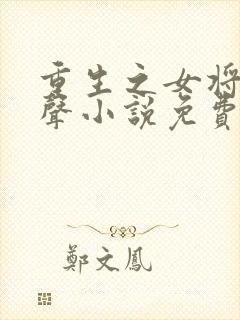 重生之女将
聲小說免費
鄭文鳳